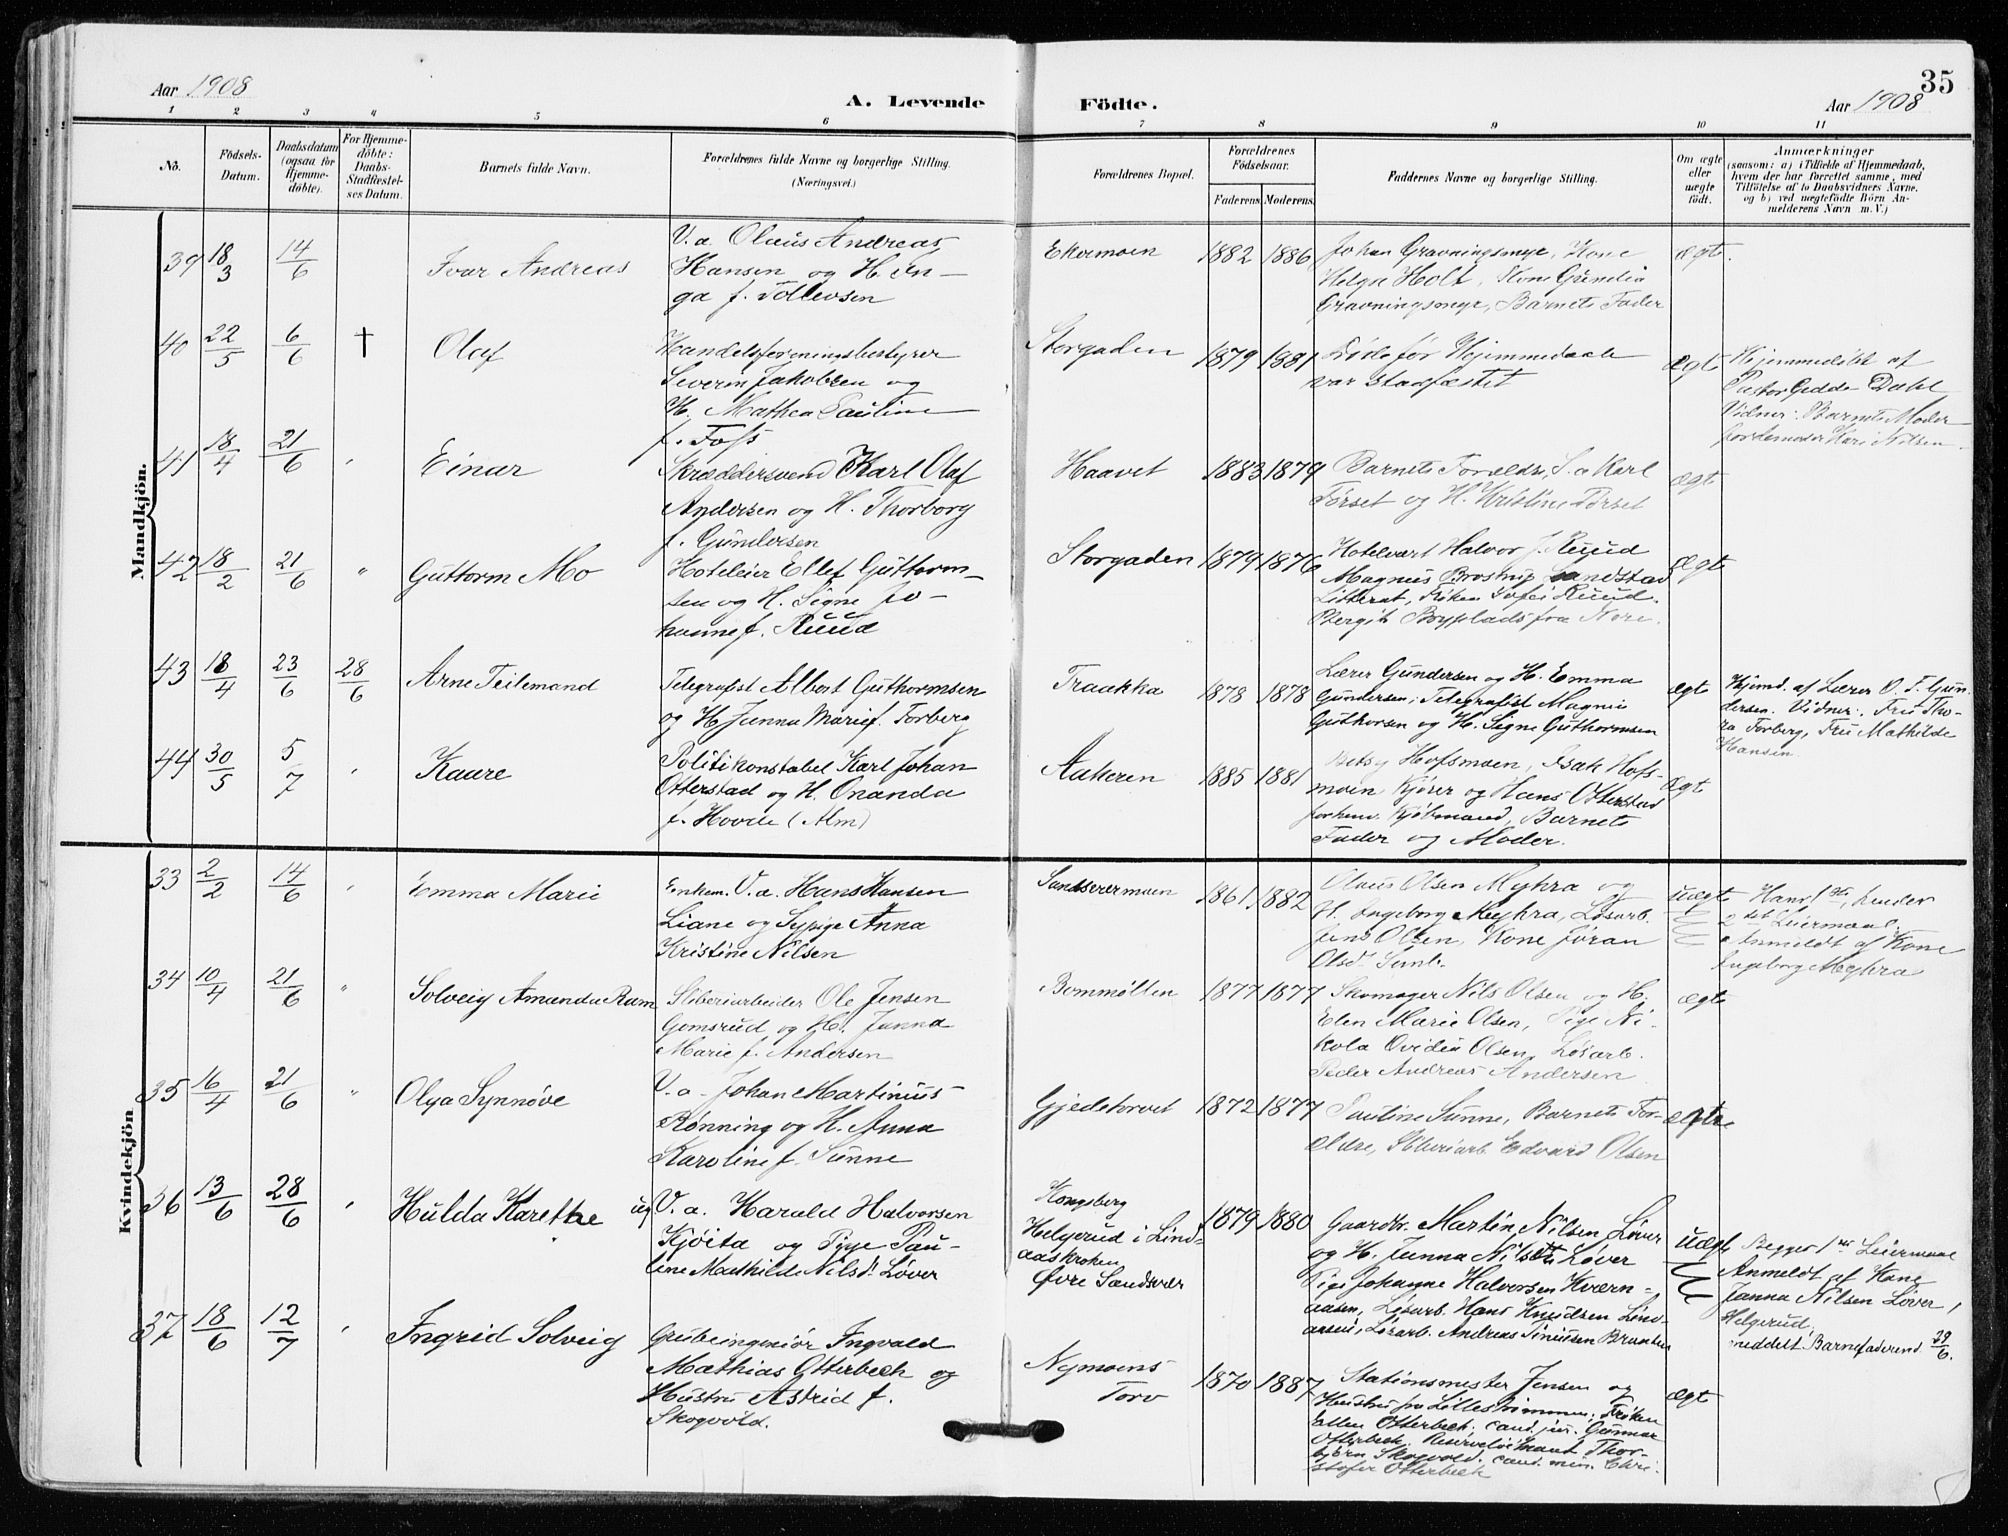 Aar 1908
A. Levende
Födte.
Aar 1908
35
1 2 3 4 5 6 7 8 9 10 11
No.
Födsels-
Datum.
Daabsdatum
(ogsaa for
Hjemme-
döbte).
For Hjemme-
döbte:
Daabs-
Stadfæstel-
ses Datum.
Barnets fulde Navn.
Forældrenes fulde Navne og borgerlige Stilling.
(Næringsvei.)
Forældrenes Bopæl.
Forældrenes
Födselsaar.
Faderens Moderens
Faddernes Navne og borgerlige Stilling.
Om ægte
eller
uægte
födt.
Anmærkninger
(saasom: a) i Tilfælde af Hjemmedaab,
hvem der har forrettet samme, med
Tilföielse af to Daabsvidners Navne.
og b) ved uægtefödte Börn An-
melderens Navn m. V.)
Mandkjön.
39 18/3 14/6 Ivar Andreas
V. a. Olaus Andreas
Hansen og H. In-
ga f. Tollevsen
Ekermoen
1882 1886
Johan Gravningsmyr, Kone
Helga Holt, Kone Gunelia
Gravningsmyr, Barnets Fader
Ægte.
40 22/5 6/6 † Olaf
Handelsforeningsbestyrer
Severin Jakobsen og
H. Mathea Pauline
f. Foss
Storgaden
1879 1881
Døde før Hjemmedaab
var stadfæstet
Ægte
Hjemmedøbt af
Pastor Gedde Dahl
Vidner: Barnets Moder
Jordemoder Kari Nilsen.
41 18/4 21/6 " Einar
Skræddersvend Karl Olaf
Andersen og H. Thorborg
f. Gundersen
Haavet
1883 1879
Barnets Forældre, S. a Karl
Førset og H. Kristine Førset
ægte
42 18/2 21/6 " Guttorm Mo
Hoteleier Ellef Guttorm-
sen og H. Signe Jo-
hanne f. Ruud
Storgaden
1879 1876
Hotelvært Halvor J. Ruud
Magnus Brostrup Landstad
Litterat, Frøken Sofie Ruud.
Bergit fra Nore.
Ægte
43 18/4 23/6 28/6 Arne Teilemand
Telegrafist Albert Guthormsen
og H. Janna Marie f. Torberg
Traakka
1878 1878
Lærer Gundersen og H. Emma
Gundersen; Telegrafist Magnus
Guthorsen og H. Signe Guthormsen
ægte
Hjemd. af Lærer O. T. Gun-
dersen. Vidner: Fru Tho-
ra Torberg, Fru Mathilde
Hansen
44 30/5 5/7 " Kaare
Politikonstabel Karl Johan
Otterstad og H. Onanda
f. Hovde (Alm)
Aakeren
1885 1881
Betsy Hofsmoen, Isak Hofs-
moen Kjører og Hans Otterstad
forhenv. Kjøbmand, Barnets
Fader og Moder.
Ægte
Kvindekjön
33 2/2 14/6 " Emma Marie
Enkem. V. a. Hans Hansen
Liane og Sypige Anna
Kristine Nilsen
Sandsværmoen
1861. 1882
Olaus Olsen Myhra og
H. Ingeborg Myhra, Løsarb.
Jens Olsen, Kone Jøran
Olsd.
uægte
Hans 1ste, hendes
2det Leiermaal.
Anmeldt af Kone
Ingeborg Myhra
34 10/4 21/6 " Solveig Amanda Ram
Sliberiarbeider Ole Jensen
Gomsrud og H. Janna
Marie f. Andersen
Bommølten
1877 1877
Skomager Nils Olsen og H.
Elen Marie Olsen, Pige Ni-
kola Ovidia Olsen, Løsarb.
Peder Andreas Andersen
ægte
35 16/4 21/6 " Olga Synnøve
V. a. Johan Martinius
Rønning og H. Anna
Karoline f. Sunne
Gjedetorvet
1872 1877
Pauline Sunne, Barnets For-
ældre, Sliberiarb. Edvard Olsen
ægte
36 13/6 28/6 " Hulda Karethe ug
V. a. Harald Halvorsen
Kjøita og Pige Pau-
line Mathilde Nilsd. Løver
Kongsberg
Helgerud i Lind-
aaskroken
Øvre Sandsvær
1879 1880
Gaardbr. Martin Nilsen Løver
og H. Janna Nilsen Løver
Pige Johanne Halvorsen Kværn-
aasen, Løsarb. Hans Knudsen Lind-
aasen, Løsarb. Andreas Braaten
uægte
Begges 1ste Leiermaal
Anmeldt af Kone
Janna Nilsen Løver,
Helgerud,
meddelt Barnefaderen 29/6.
37 18/6 12/7 " Ingrid Solveig
Grubeingeniør Ingvald
Mathias Otterbech og
Hustru Astrid f.
Skogvold.
Nymoens
Torv
1870 1887
Stationsmester Jensen og
Hustru fra Lillestrømmen, Frøken
Ellen Otterbech, cand. jur. Gunnar
Otterbech, Reserveløitnant Thor-
bjørn Skogvold, cand. min. Chri-
stofer Otterbech
ægte